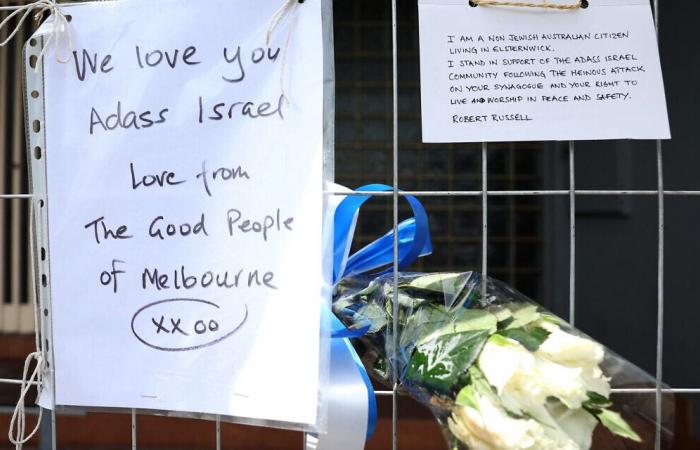 We love you
Adass Israel
Love from
The Good People
of Melbourne
xxoo
I AM A NON JEWISH AUSTRALIAN CITIZEN
LIVING IN ELSTERNWICK.
I STAND IN SUPPORT OF THE ADASS ISRAEL
COMMUNITY FOLLOWING THE HEINOUS ATTACK
ON YOUR SYNAGOGUE AND YOUR RIGHT TO
LIVE AND WORSHIP IN PEACE AND SAFETY.
ROBERT RUSSELL